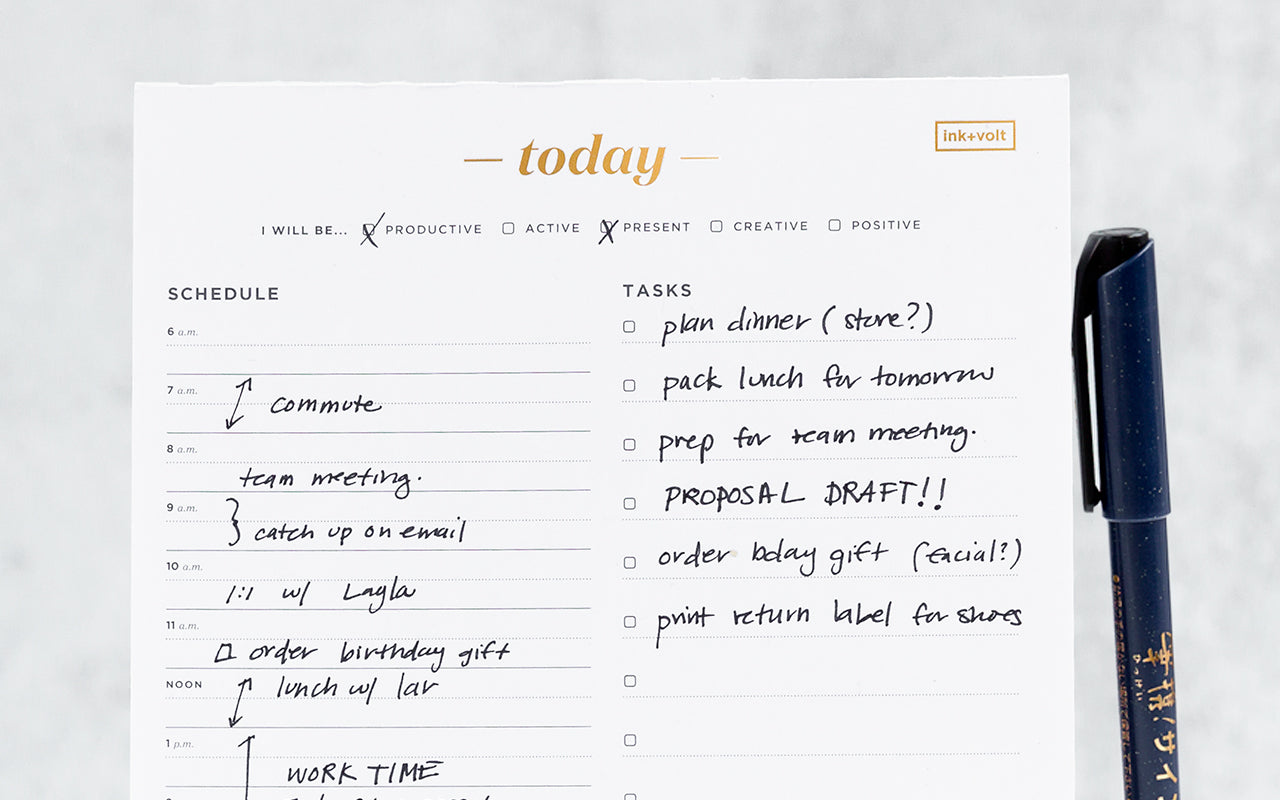 today
ink+volt
I WILL BE... PRODUCTIVE ACTIVE PRESENT CREATIVE POSITIVE
SCHEDULE
6 a.m.
7 a.m.
commute
8 a.m.
team meeting.
9 a.m.
catch up on email
10 a.m.
1:1 w/ Layla
11 a.m.
order birthday gift
NOON
lunch w/ lar
1 p.m.
WORK TIME
TASKS
plan dinner (store?)
pack lunch for tomorrow
prep for team meeting.
PROPOSAL DRAFT!!
order bday gift (facial?)
print return label for shoes